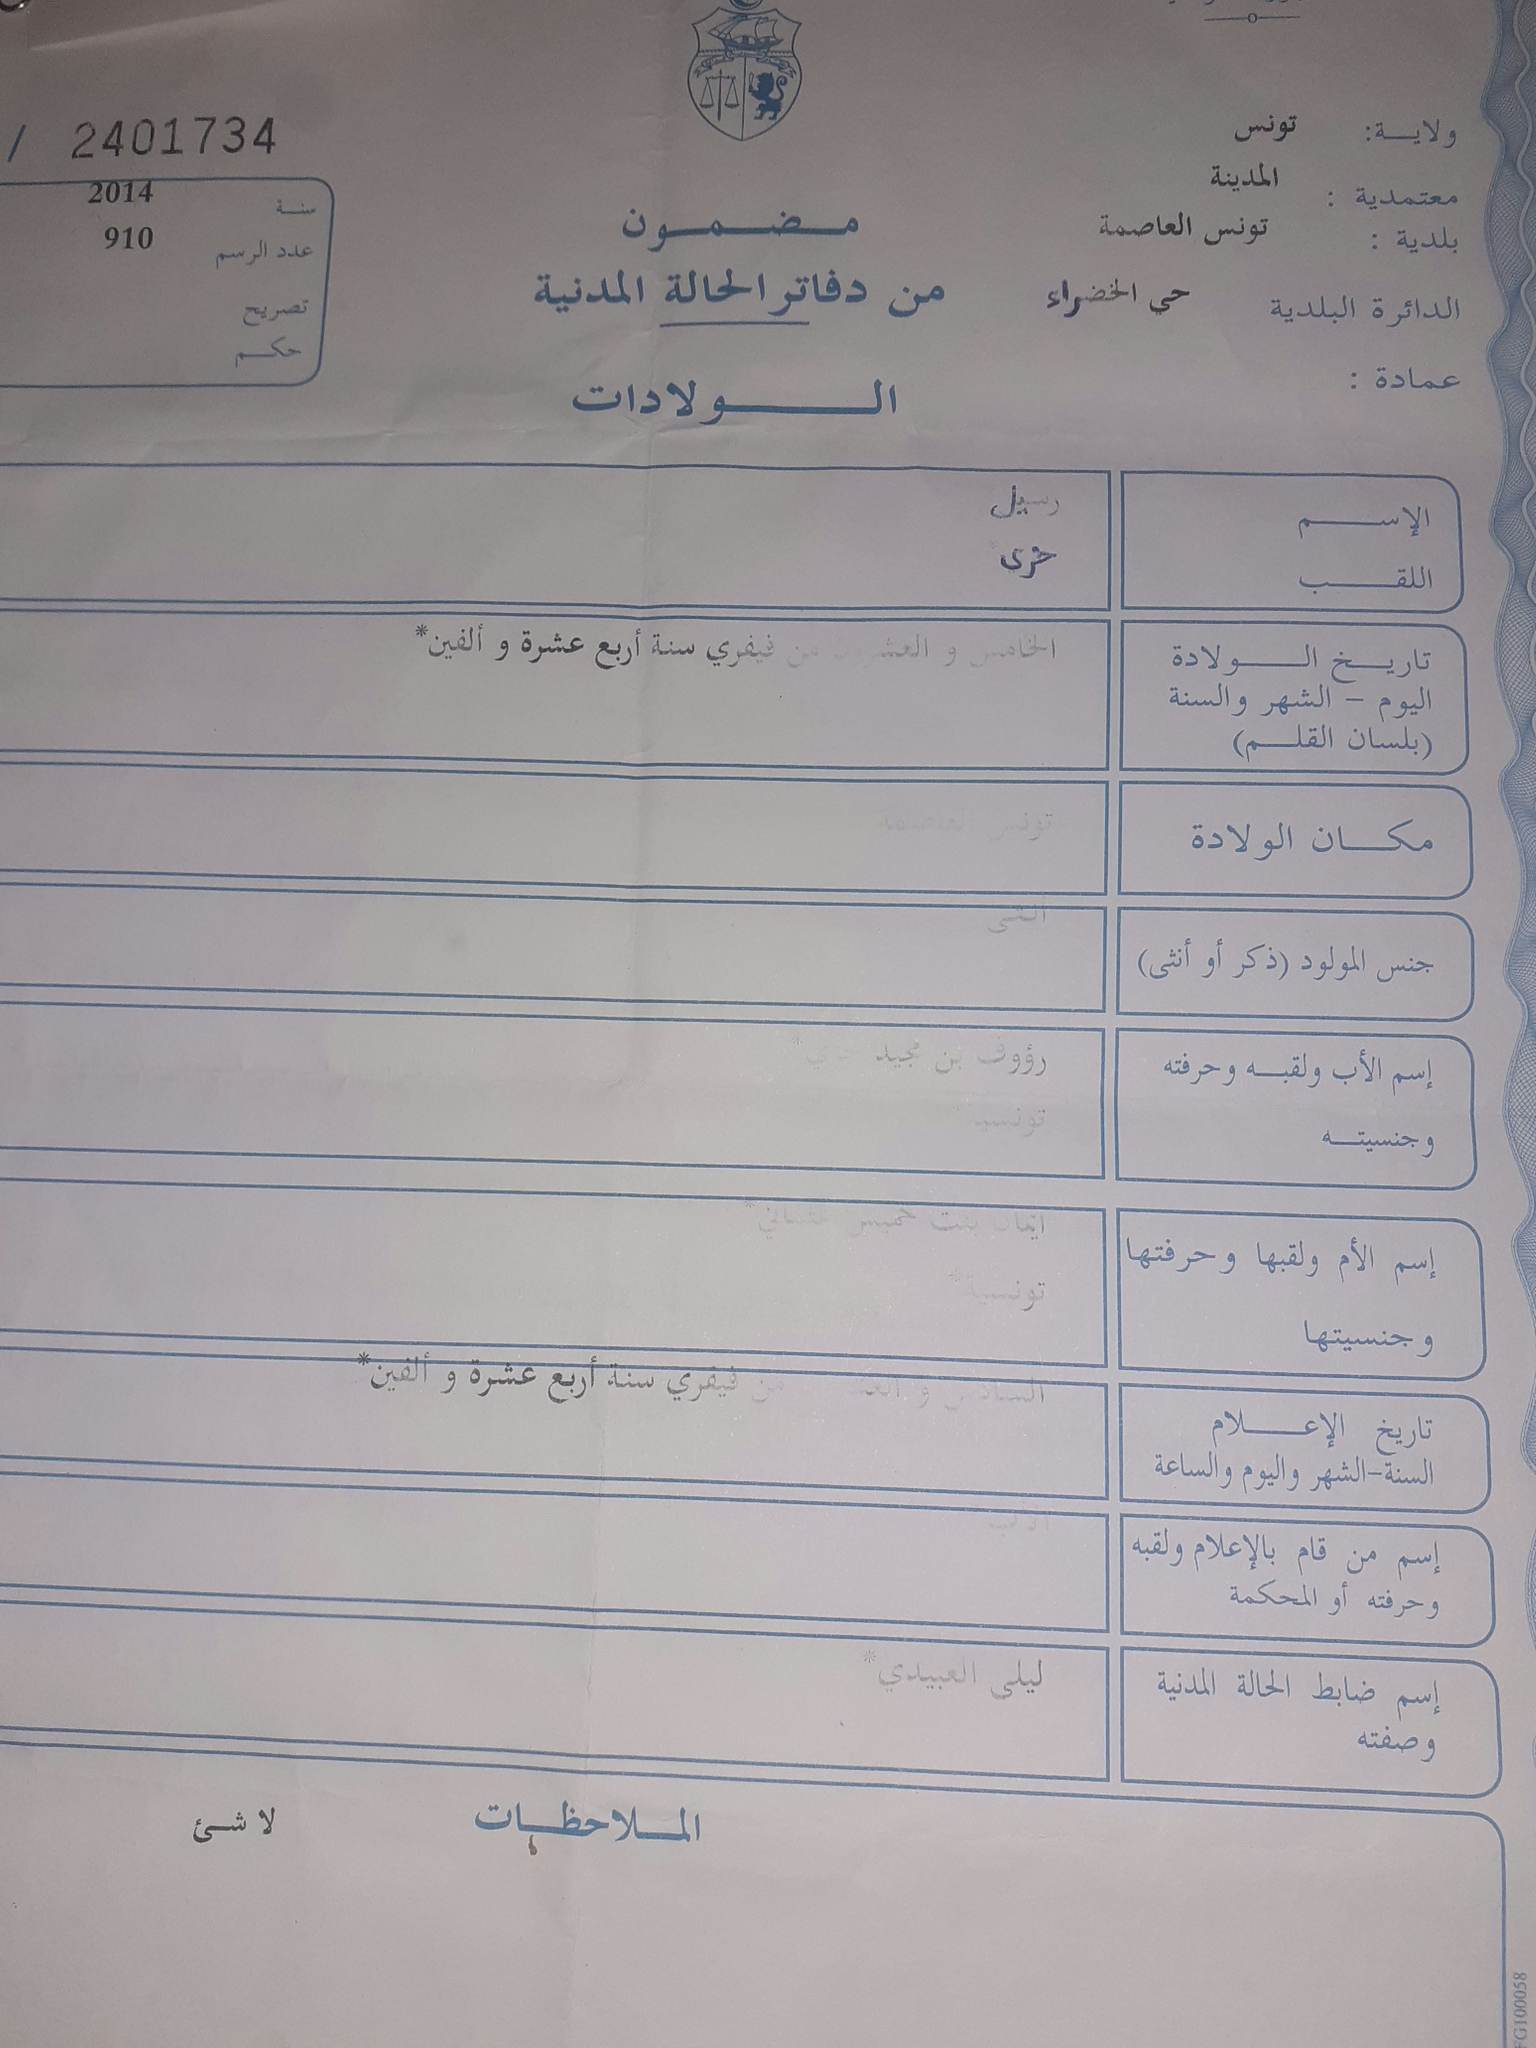 / 2401734
سنة 2014
عدد الرسم 910
تصريح
حكم
ولاية: تونس
معتمدية : المدينة
بلدية : تونس العاصمة
الدائرة البلدية حي الخضراء
عمادة :
مضمون
من دفاتر الحالة المدنية
الولادات
الإسم رسيل
اللقب
تاريخ الولادة
اليوم - الشهر والسنة
(بلسان القلم)
الخامس و العشرون من فيفري سنة أربع عشرة و ألفين*
مكان الولادة
تونس العاصمة
جنس المولود (ذكر أو أنثى)
أنثى
إسم الأب ولقبه وحرفته
وجنسيته
رؤوف بن مجيد
تونسية
إسم الأم ولقبها وحرفتها
وجنسيتها
بنت خميس
تونسية*
تاريخ الإعلام
السنة-الشهر واليوم والساعة
السادس و من فيفري سنة أربع عشرة و ألفين*
إسم من قام بالإعلام ولقبه
وحرفته أو المحكمة
الأب
إسم ضابط الحالة المدنية
وصفته
ليلى العبيدي*
الملاحظات لا شئ
FG100058